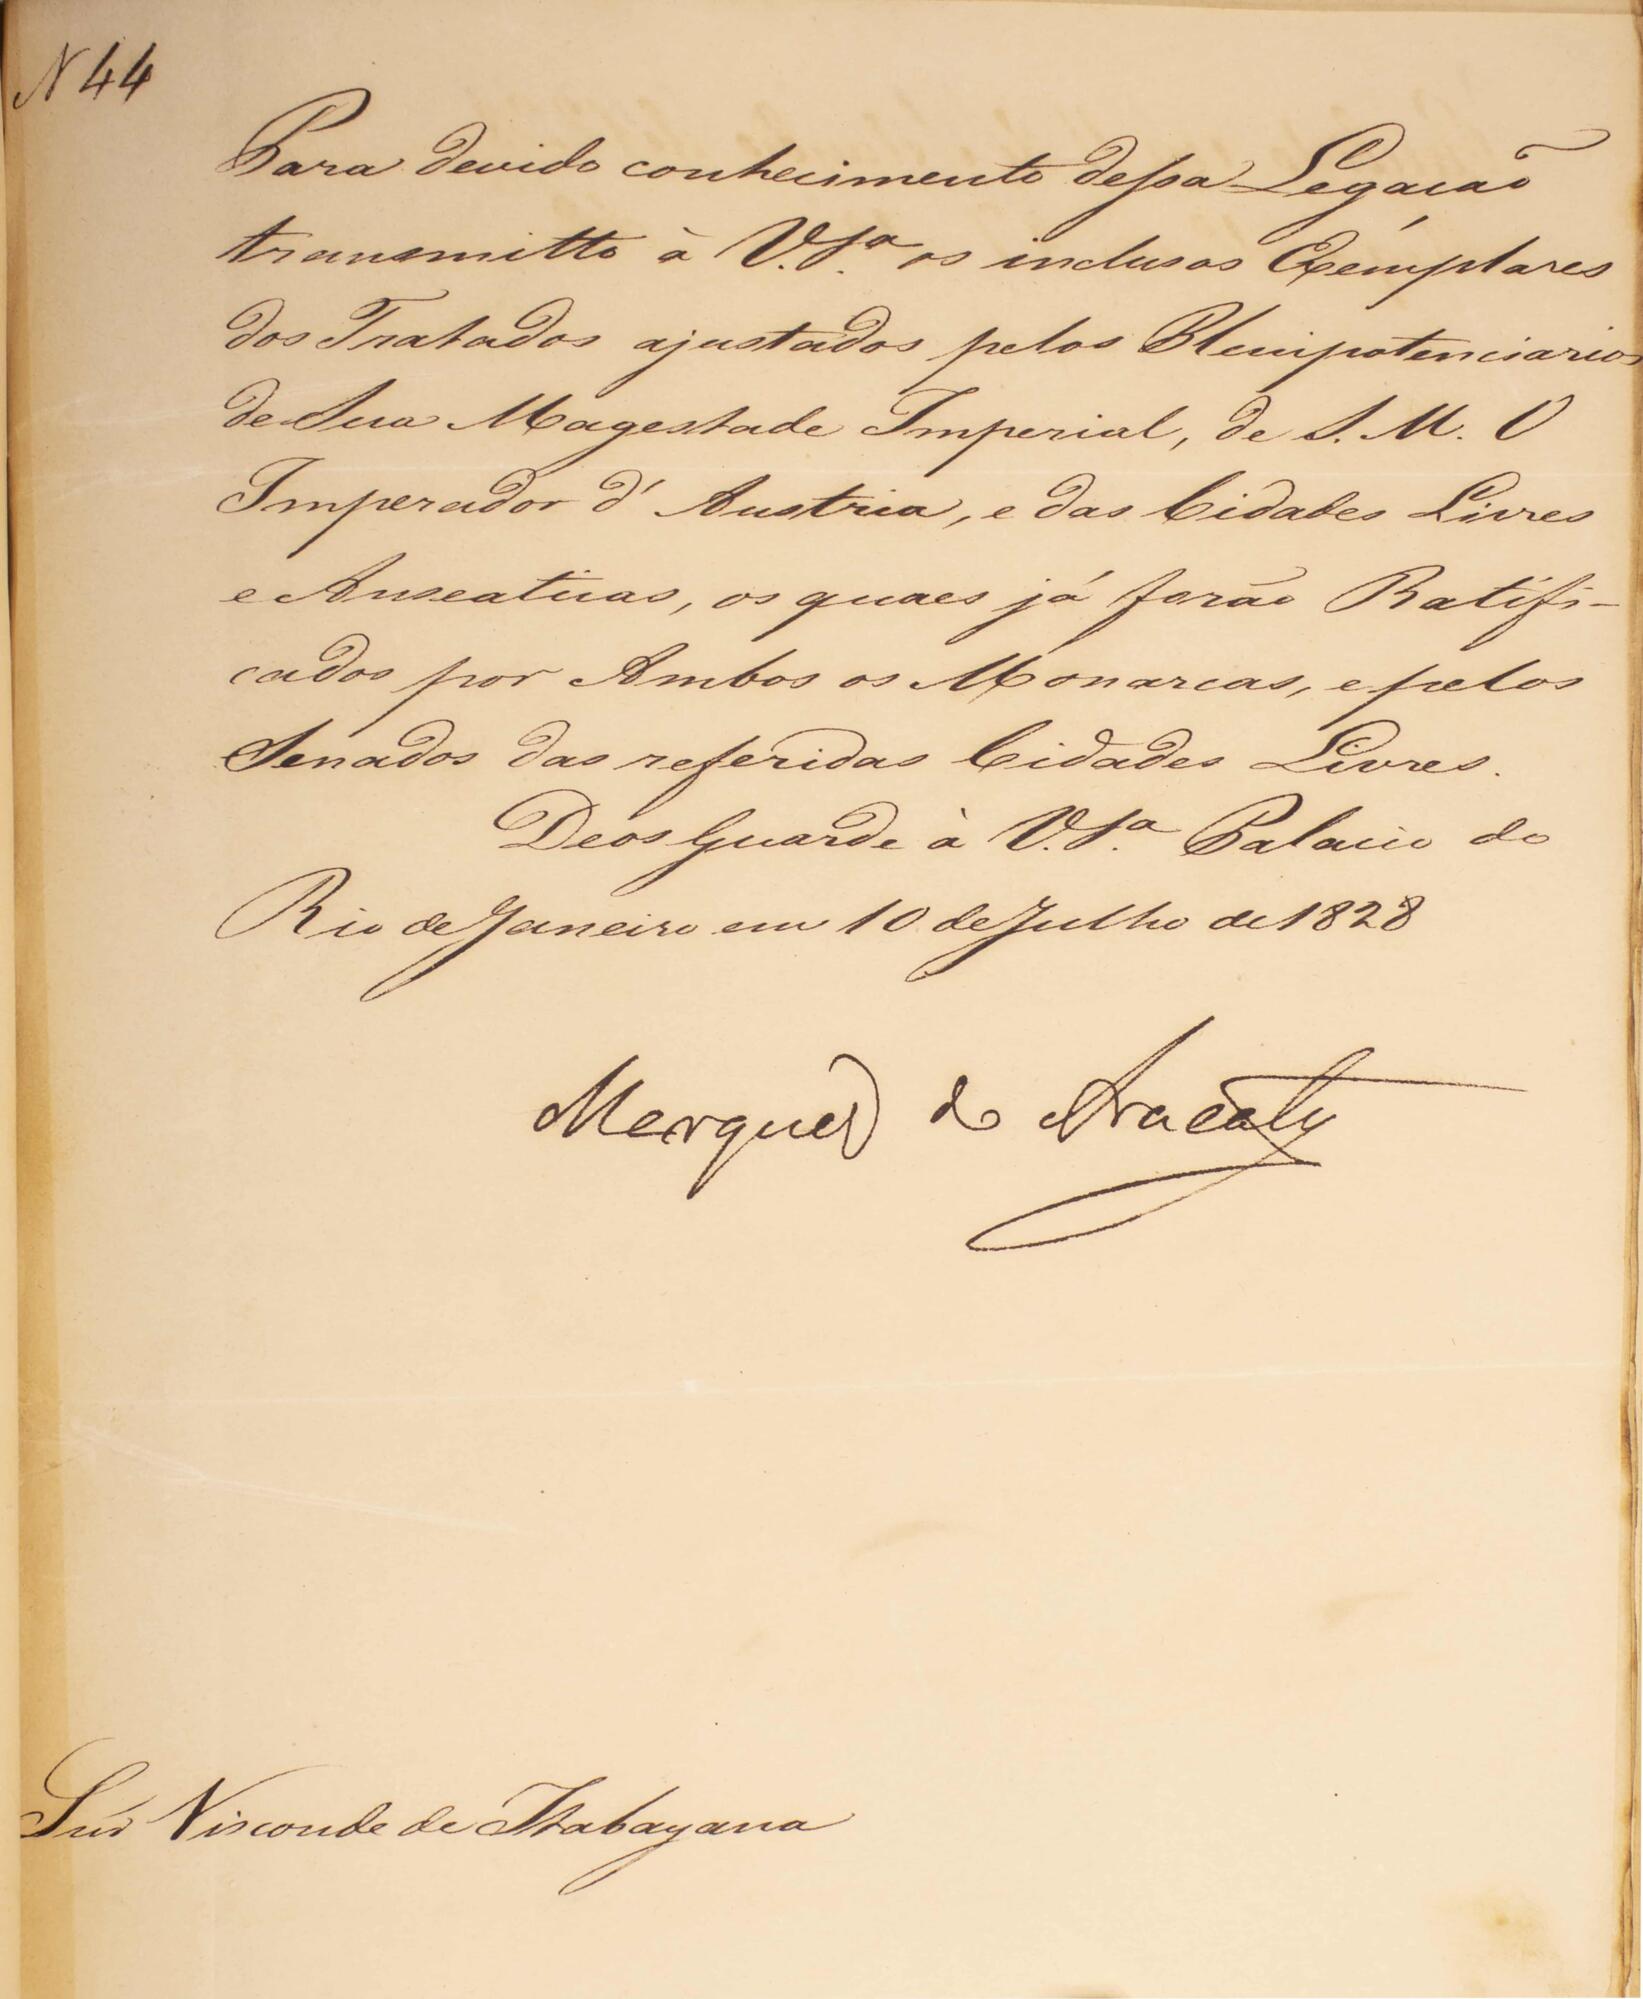 N 44
Para devido conhecimento dessa Legacaõ
transmitto à V.S.ª os inclusos Exemplares
dos Tratados ajustados pelos Plenipotenciarios
de Sua Magestade Imperial, de S. M. O
Imperador d'Austria, e das Cidades Livres
e Anseaticas, os quaes já forão Ratifi-
cados por Ambos os Monarcas, e pelos
Senados das referidas Cidades Livres.
Deos Guarde à V.S.ª Palacio do
Rio de Janeiro em 10 de Julho de 1828
Marquez de Aracaty
Snr Visconde de Itabayana